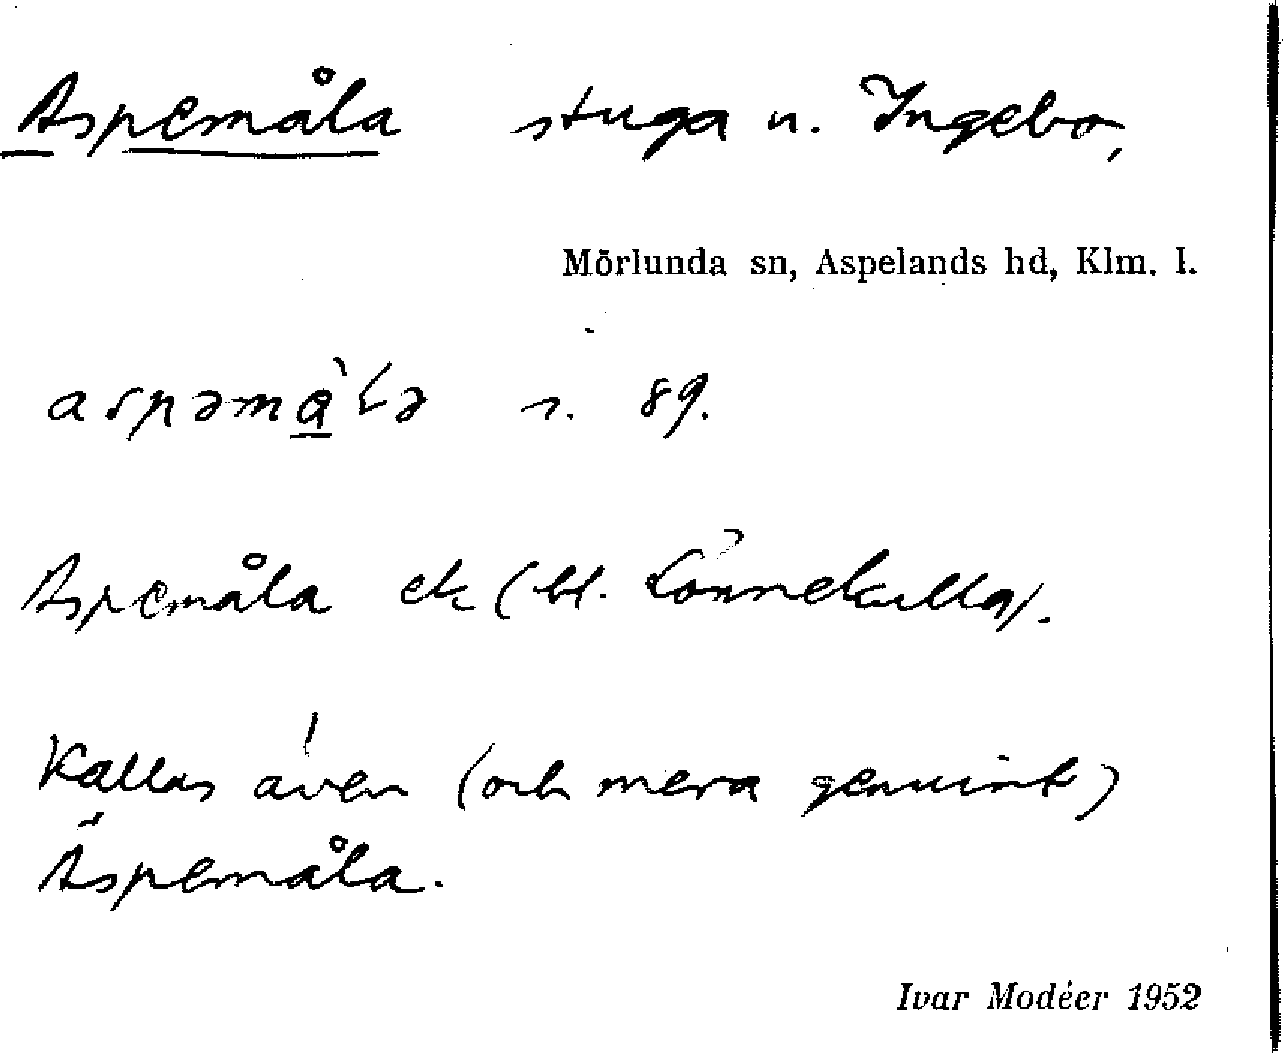 Aspemåla stuga u. Ingebo,
Mörlunda sn, Aspelands hd, Klm. l.
s. 89.
Aspemåla ek (bl. Lönnekulla).
Kallas även (och mera genuint)
Äspemåla.
Ivar Modéer 1952